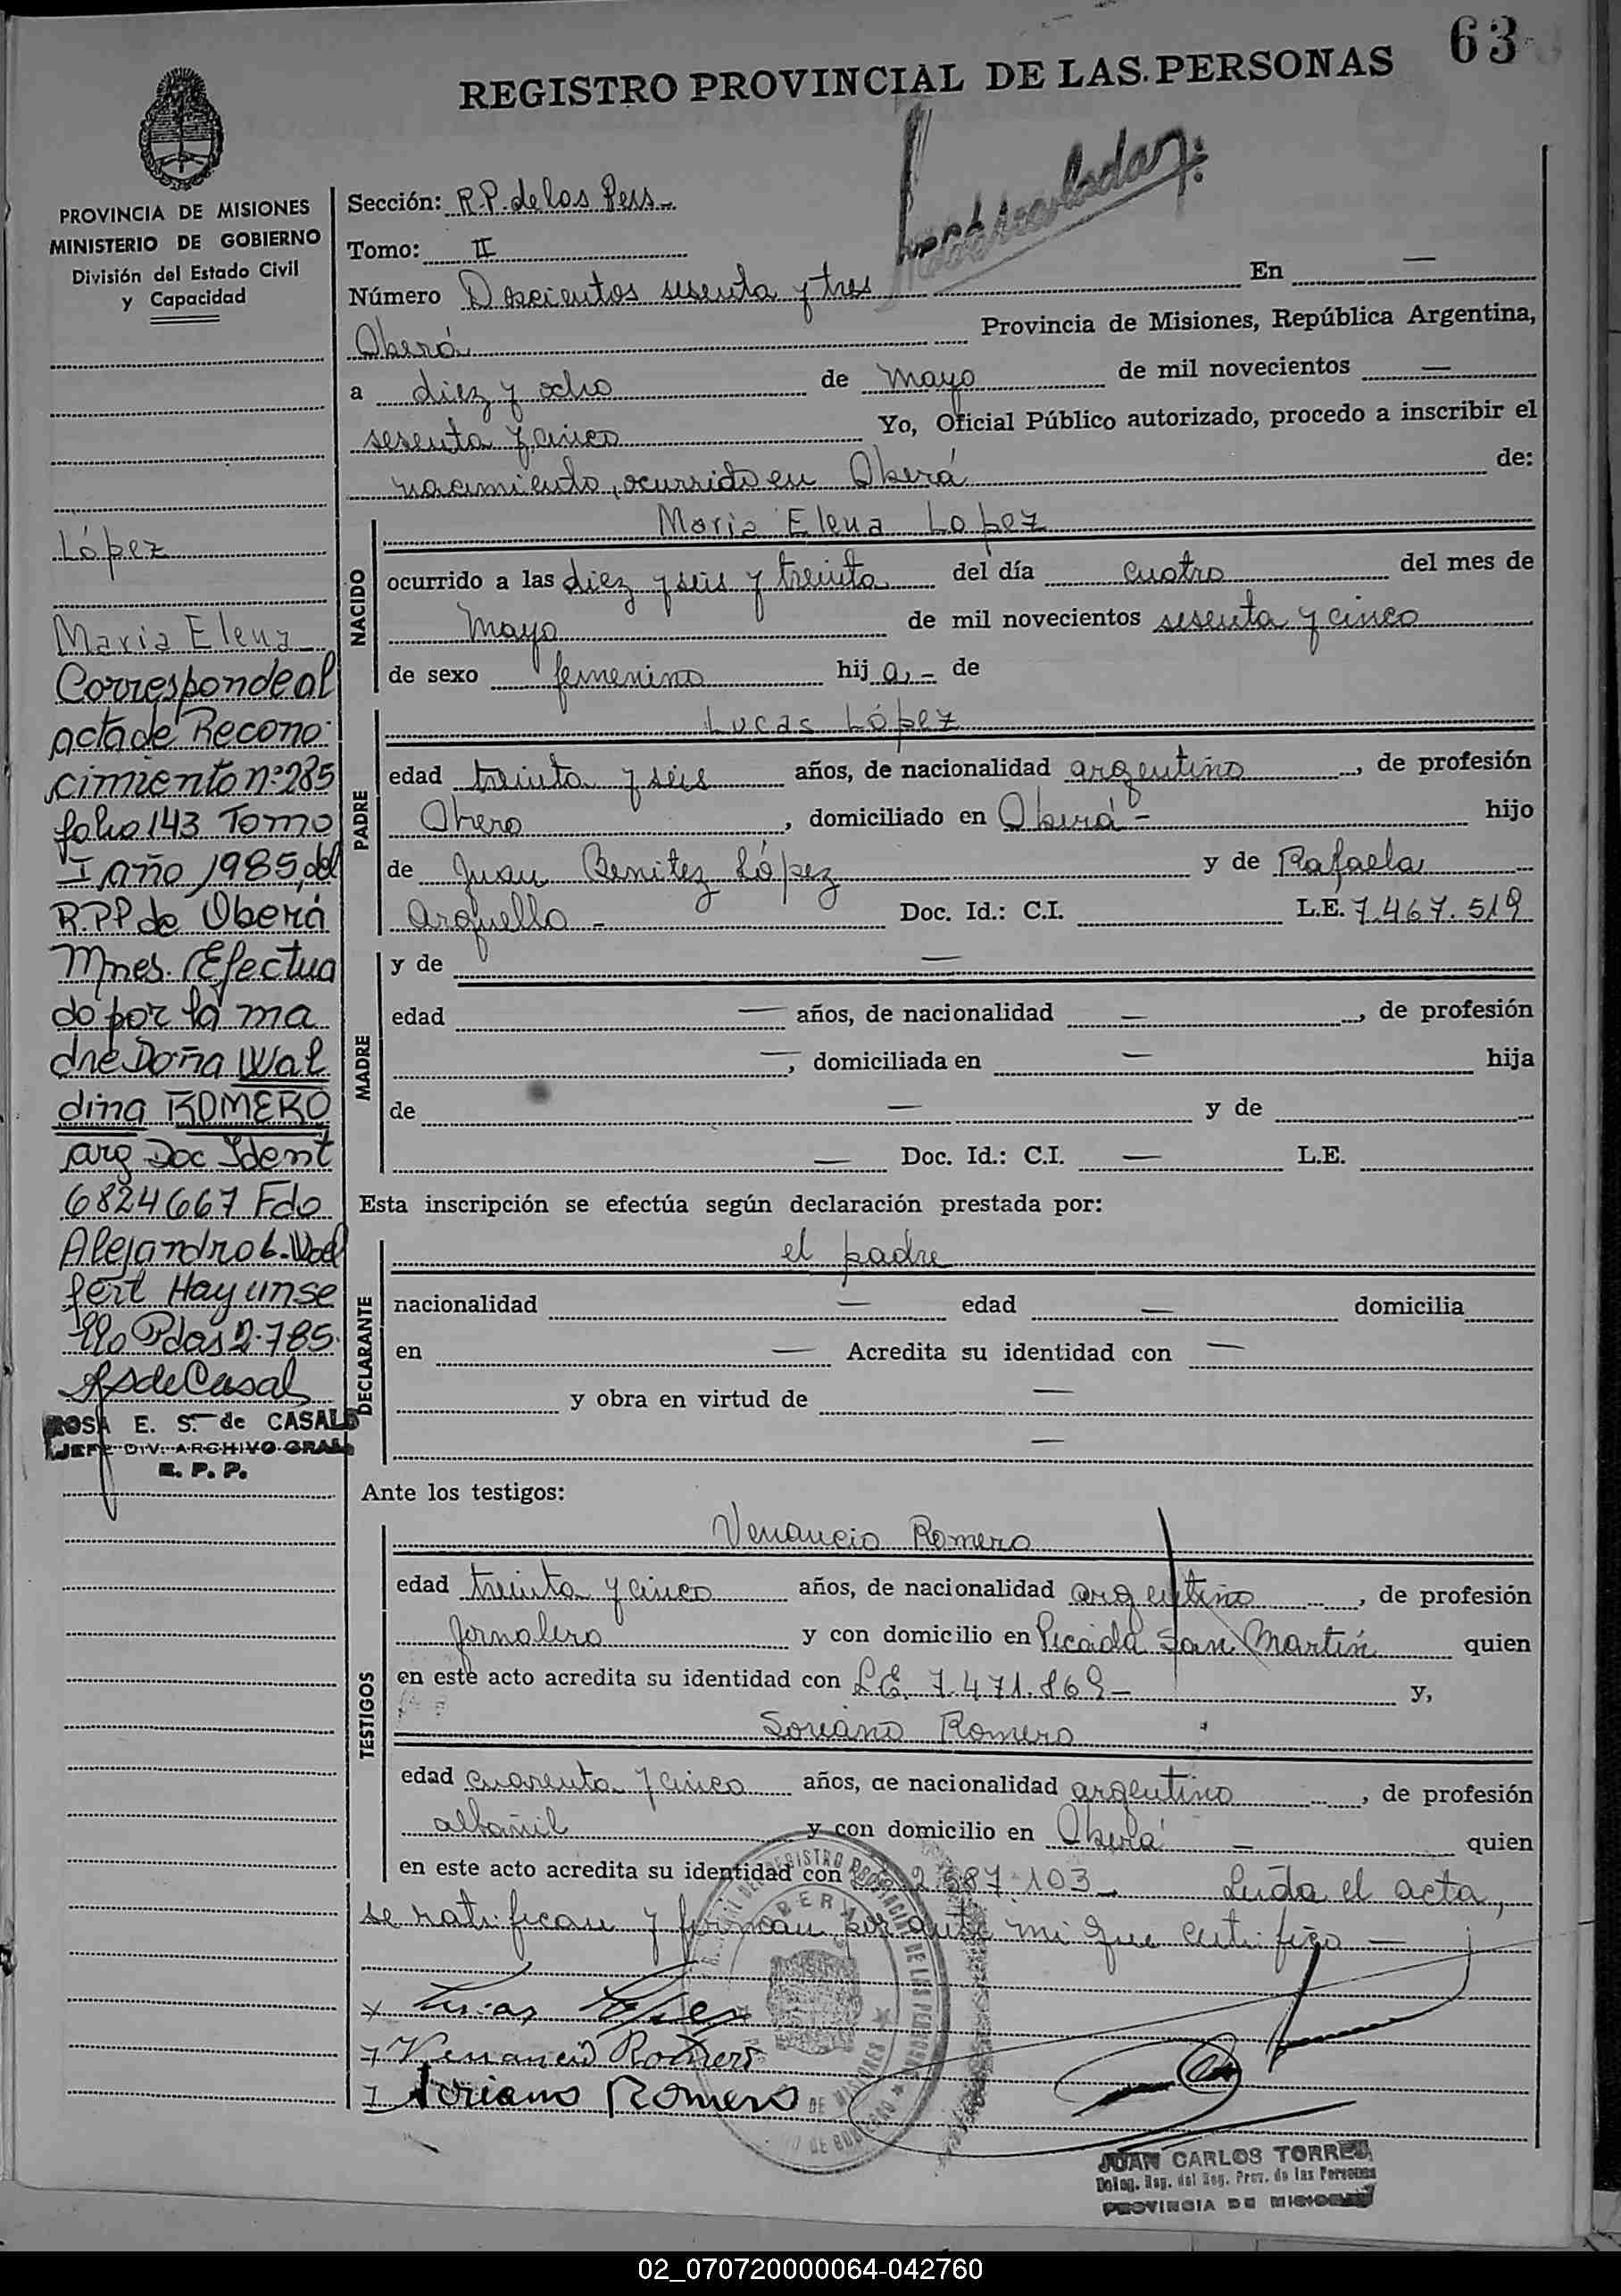 63
REGISTRO PROVINCIAL DE LAS PERSONAS
PROVINCIA DE MISIONES
MINISTERIO DE GOBIERNO
División del Estado Civil
y Capacidad
López
Maria Elena
Corresponde al
acta de Recono-
cimiento nº 285
folio 143 Tomo
I año 1985, del
R.P.P de Oberá
Mnes. Efectua
do por la ma
dre Doña Wal
dina ROMERO
arg Doc Ident
6824667 Fdo
Alejandro L. Woel
fert Hay un se
llo Pdas 2.785.
RSdeCasal
ROSA E. S. de CASALS
JEFE DIV. ARCHIVO GRAL
R. P. P.
Sección: R.P. de las Pers.-
Tomo: II
Número Doscientos sesenta y tres En —
Oberá Provincia de Misiones, República Argentina,
a diez y ocho de Mayo de mil novecientos —
sesenta y cinco Yo, Oficial Público autorizado, procedo a inscribir el
nacimiento, ocurrido en Oberá de:
NACIDO
Maria Elena Lopez
ocurrido a las diez y seis y treinta del día cuatro del mes de
Mayo de mil novecientos sesenta y cinco
de sexo femenino hij a,- de
PADRE
Lucas López
edad treinta y seis años, de nacionalidad argentino, de profesión
Obrero, domiciliado en Oberá - hijo
de Juan Benitez López y de Rafaela
Arguello - Doc. Id.: C.I. L.E. 7.467.519
MADRE
y de —
edad — años, de nacionalidad —, de profesión
—, domiciliada en — hija
de — y de
— Doc. Id.: C.I. — L.E.
Esta inscripción se efectúa según declaración prestada por:
DECLARANTE
el padre
nacionalidad — edad — domicilia
en — Acredita su identidad con —
y obra en virtud de —
—
Ante los testigos:
TESTIGOS
Venancio Romero
edad treinta y cinco años, de nacionalidad argentino, de profesión
Jornalero y con domicilio en Picada San Martín quien
en este acto acredita su identidad con L.E. 7.471.869- y,
Soriano Romero
edad cuarenta y cinco años, de nacionalidad argentino, de profesión
albañil y con domicilio en Oberá - quien
en este acto acredita su identidad con 2.587.103- Leída el acta,
se ratifican y firman por ante mi que certifico —
Lucas López
Venancio Romero
Soriano Romero
JUAN CARLOS TORRES
Deleg. Reg. del Reg. Prov. de las Personas
PROVINCIA DE MISIONES
02_070720000064-042760